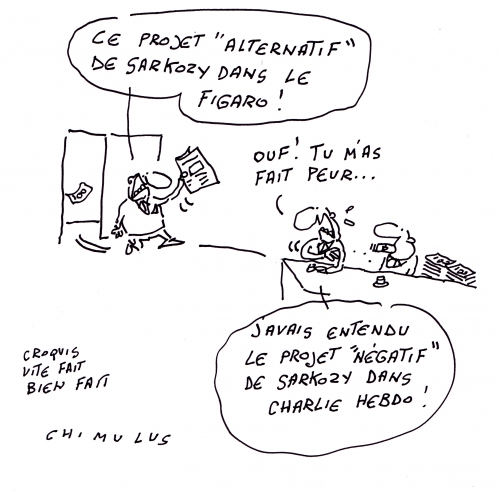 CE PROJET "ALTERNATIF"
DE SARKOZY DANS LE
FIGARO !
OUF! TU M'AS
FAIT PEUR...
J'AVAIS ENTENDU
LE PROJET "NÉGATIF"
DE SARKOZY DANS
CHARLIE HEBDO !
CROQUIS
VITE FAIT
BIEN FAIT
CHIMULUS